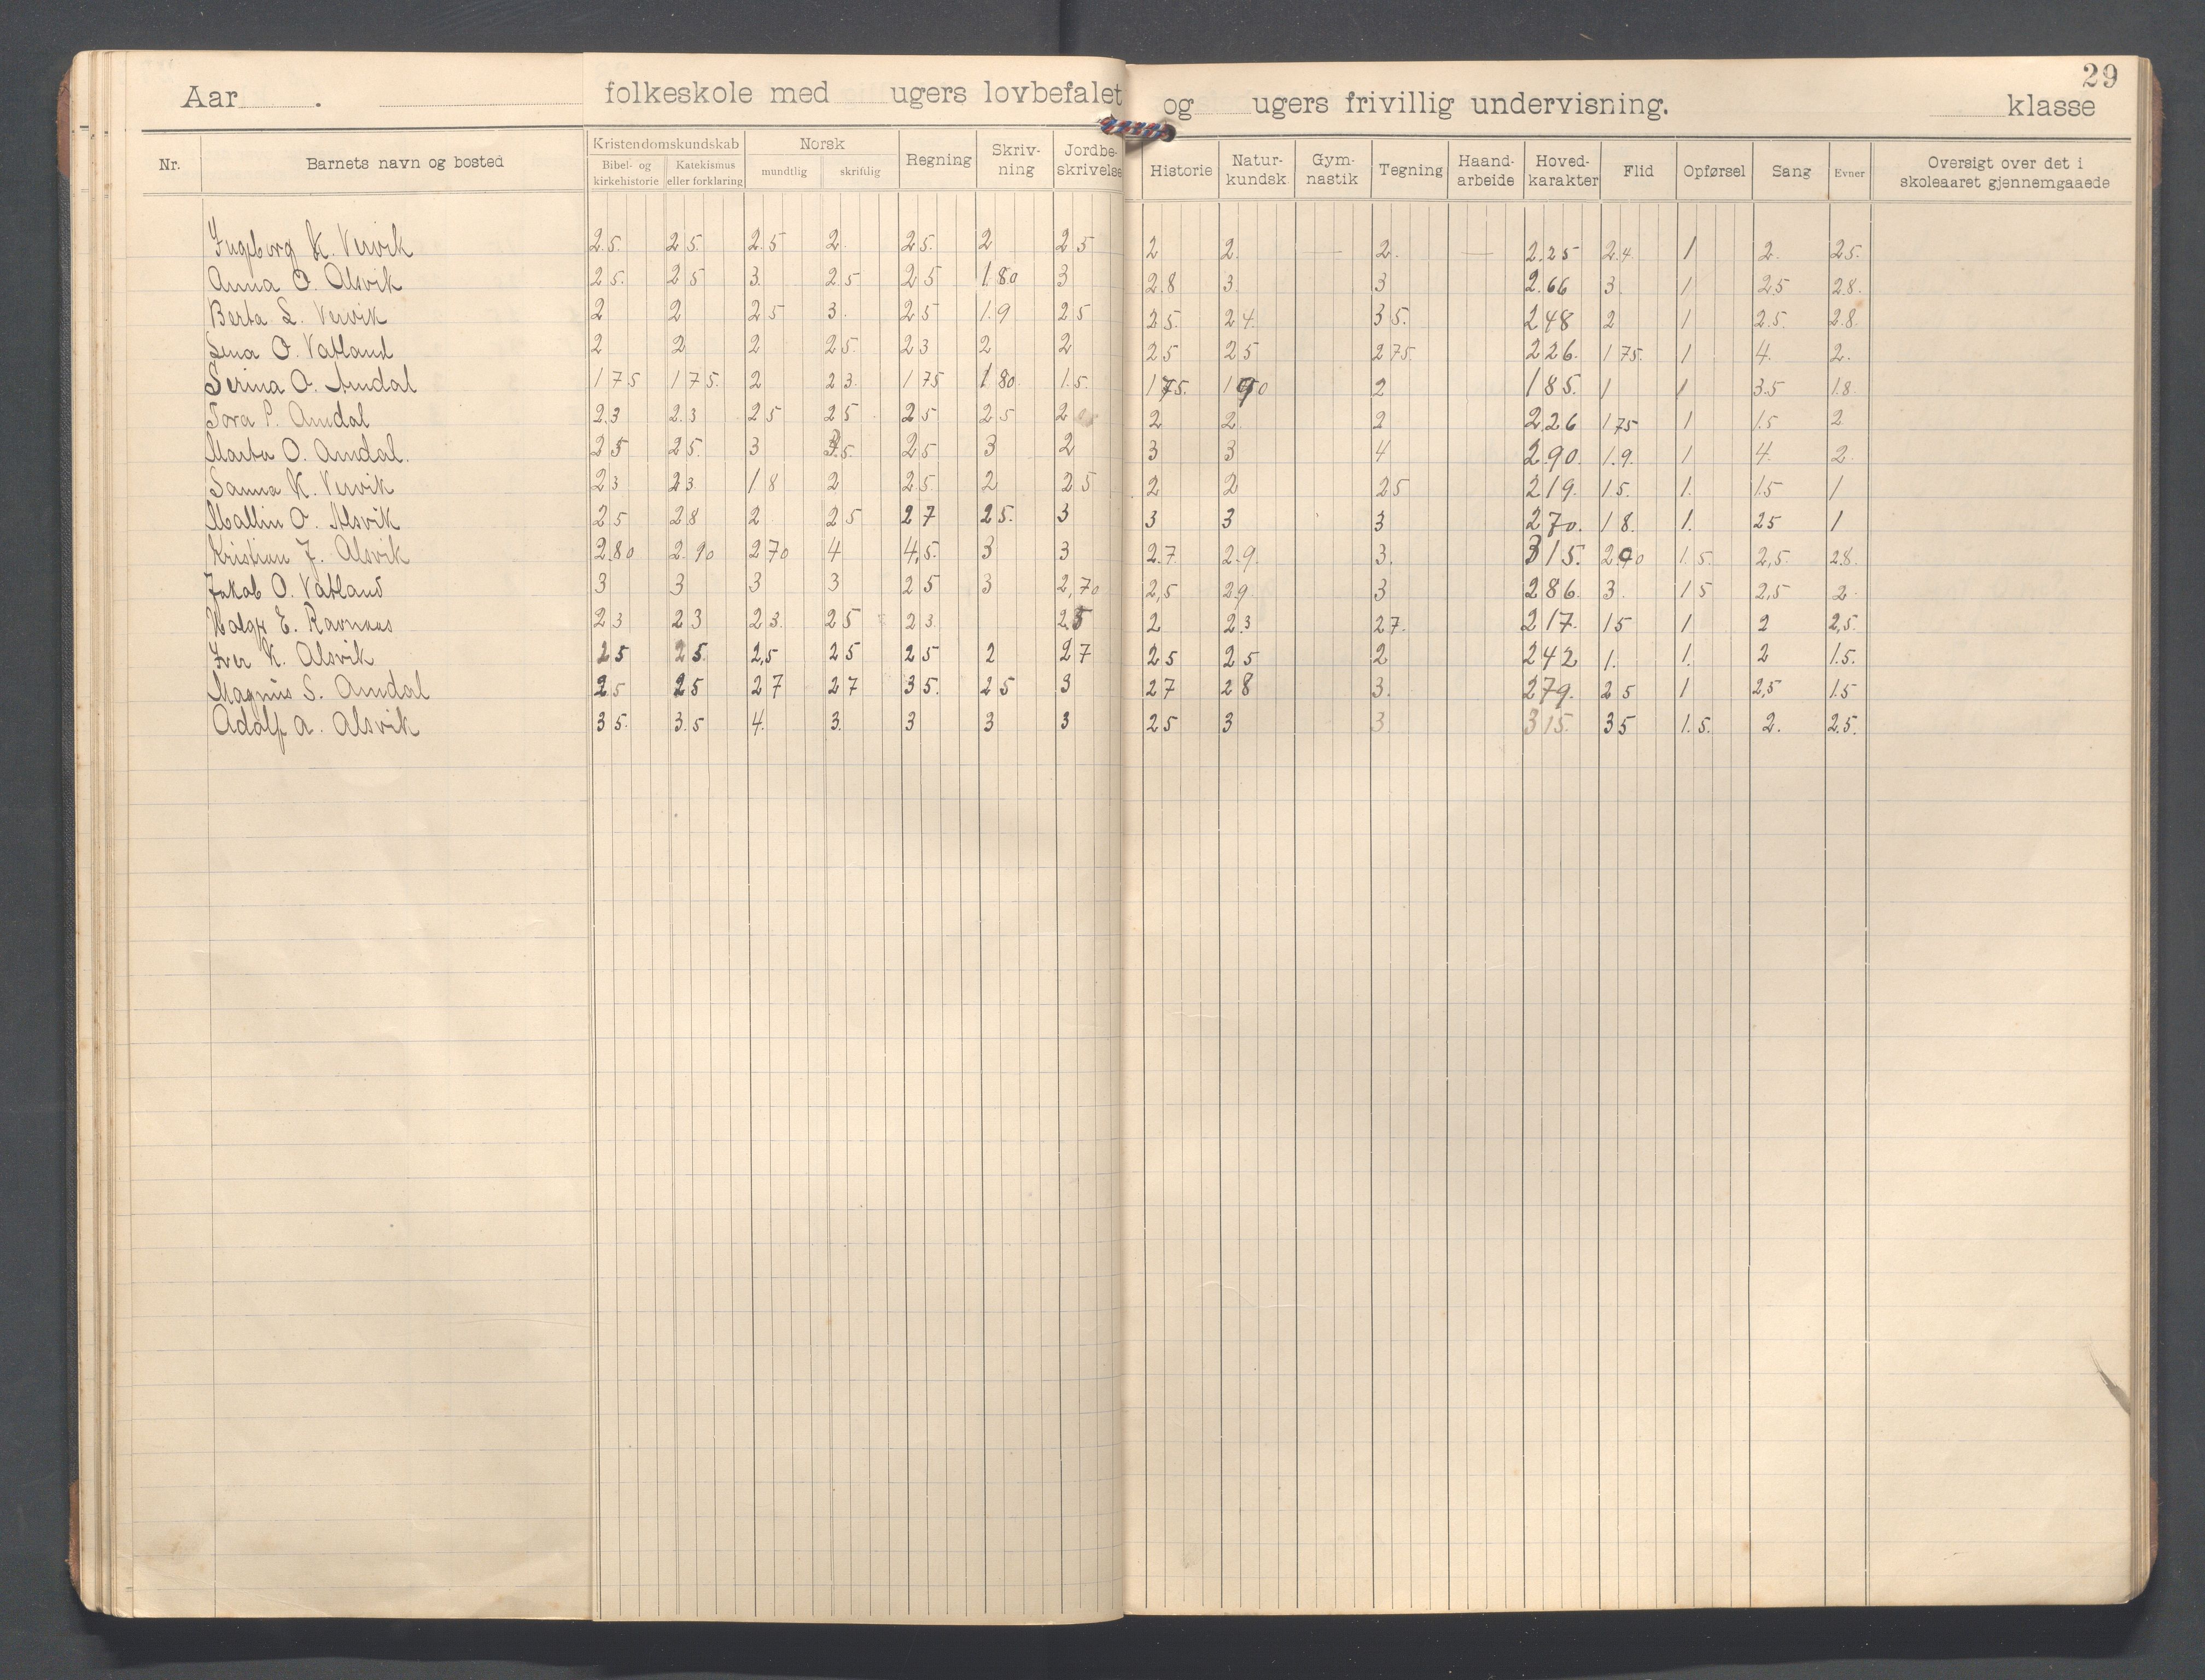 29
Aar . folkeskole med ugers lovbefalet og ugers frivillig undervisning. klasse
Nr. Barnets navn og bosted Kristendomskundskab Bibel- og kirkehistorie Katekismus eller forklaring Norsk mundtlig skriftlig Regning Skriv-ning Jordbe-skrivelse Historie Natur-kundsk. Gym-nastik Tegning Haand-arbeide Hoved-karakter Flid Opførsel Sang Evner Oversigt over det i skoleaaret gjennemgaaede
Ingeborg K. Vervik 2.5. 2.5. 2.5 2. 2.5. 2 2.5 2 2. — 2. — 2.25 2.4. 1 2. 2.5.
Anna O. Alsvik 2.5. 2.5 3. 2.5 2.5 1.80 3 2.8 3 3 2.66 3. 1 2.5 2.8.
Berta L. Vervik 2 2 2.5 3. 2.5 1.9 2.5 2.5. 2.4. 3.5. 2.48 2 1 2.5. 2.8.
Lena O. Vatland 2 2 2 2.5. 2.3 2 2 2.5 2.5 2.75. 2.26. 1.75. 1 4. 2.
Serina O. Amdal 1.75 1.75. 2 2.3. 1.75 1.80. 1.5. 1.75. 1.90 2 1.85. 1 1 3.5 1.8.
Tora P. Amdal 2.3 2.3 2.5 2.5 2.5 2.5 2 2 2. 2 2.26 1.75 1 1.5 2
Marta O. Amdal. 2.5 2.5. 3 3.5. 2.5 3 2 3 3 4 2.90. 1.9. 1 4. 2.
Sanna K. Vervik 2.3 2.3. 1.8 2 2.5. 2 2.5 2 2 2.5 2.19. 1.5. 1. 1.5 1
Mallin O. Alsvik 2.5 2.8 2 2.5 2.7 2.5. 3 3 3 3 2.70. 1.8. 1. 2.5 1
Kristian J. Alsvik 2.80 2.90 2.70 4 4,5. 3 3 2.7. 2.9. 3. 3.15. 2.90 1.5. 2,5. 2.8.
Jakob O. Vatland 3 3 3 3 2.5 3 2,70 2,5 2.9 3 2.86. 3. 1.5 2,5 2
Holger E. Ravnaas 2.3 2.3 2.3. 2.5 2.3. 2.5 2 2.3 2.7. 2.17. 1.5 1 2 2,5.
Iver K. Alsvik 2.5 2.5. 2,5 2.5 2.5 2 2.7 2.5 2.5 2 2.42 1. 1. 2 1.5.
Magnus S. Amdal 2.5 2.5 2.7 2.7 3.5. 2.5 3 2.7 2.8 3. 2.79. 2.5 1 2,5 1.5
Adolf A. Alsvik 3.5. 3.5 4. 3. 3 3 3 2.5 3 3. 3.15. 3.5 1.5. 2. 2.5.